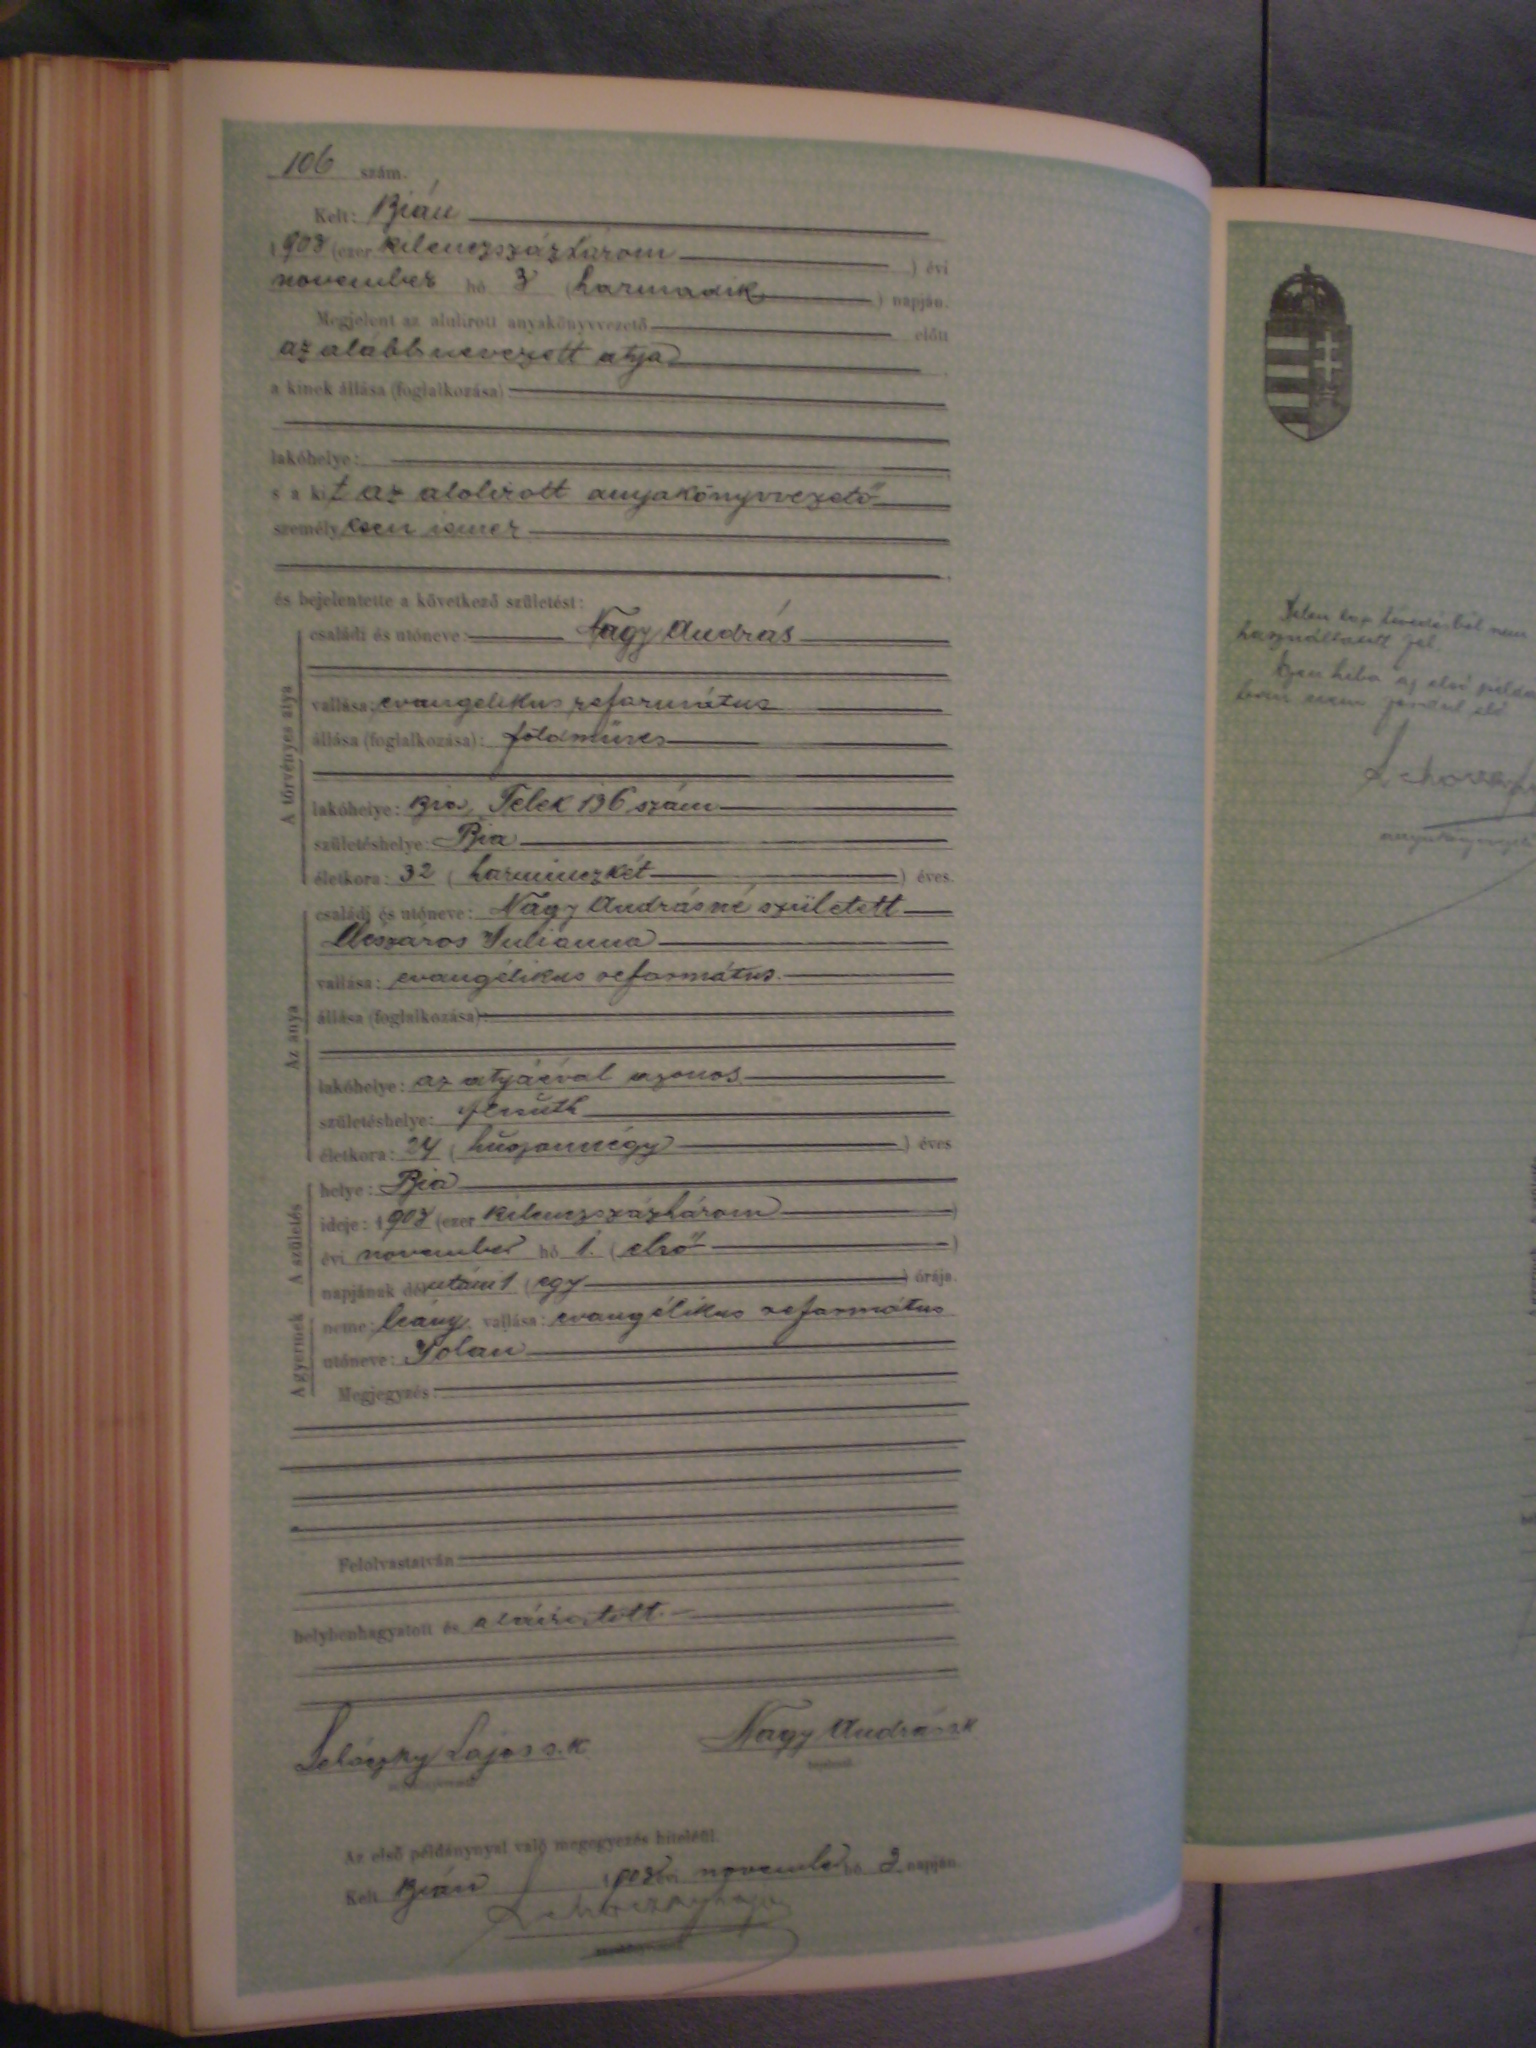 106 szám.
Kelt: Bián
1903 (ezer kilenczszázhárom ) évi
november hó 3 (harmadik ) napján.
Megjelent az alulirott anyakönyvvezető előtt
az alább nevezett atya
a kinek állása (foglalkozása)
lakóhelye:
s a kit az alolirott anyakönyvvezető
személyesen ismer
és bejelentette a következő születést:
A törvényes atya
családi és utóneve: Nagy András
vallása: evangelikus református
állása (foglalkozása): földmüves
lakóhelye: Bia, Telek 136 szám
születéshelye: Bia
életkora: 32 (harminczkét ) éves.
Az anya
családi és utóneve: Nagy Andrásné született
Mészáros Julianna
vallása: evangélikus református.
állása (foglalkozása):
lakóhelye: az atyáéval azonos
születéshelye:
életkora: 24 (húszonnégy ) éves
A születés
helye: Bia
ideje: 1903 (ezer kilenczszázhárom )
évi november hó 1. (első )
napjának délutáni 1 (egy ) órája.
A gyermek
neme: leány. vallása: evangélikus református
utóneve: Jolan
Megjegyzés:
Felolvastatván
helybenhagyatott és aláiratott.
Lajos s. k Nagy András k
Az első példánynyal való megegyezés hiteléül.
Kelt Bián 1903 évi november hó 3 napján.
Jelen lap tévedésből nem
használtatott fel.
Ezen hiba az első
ban nem fordul elő